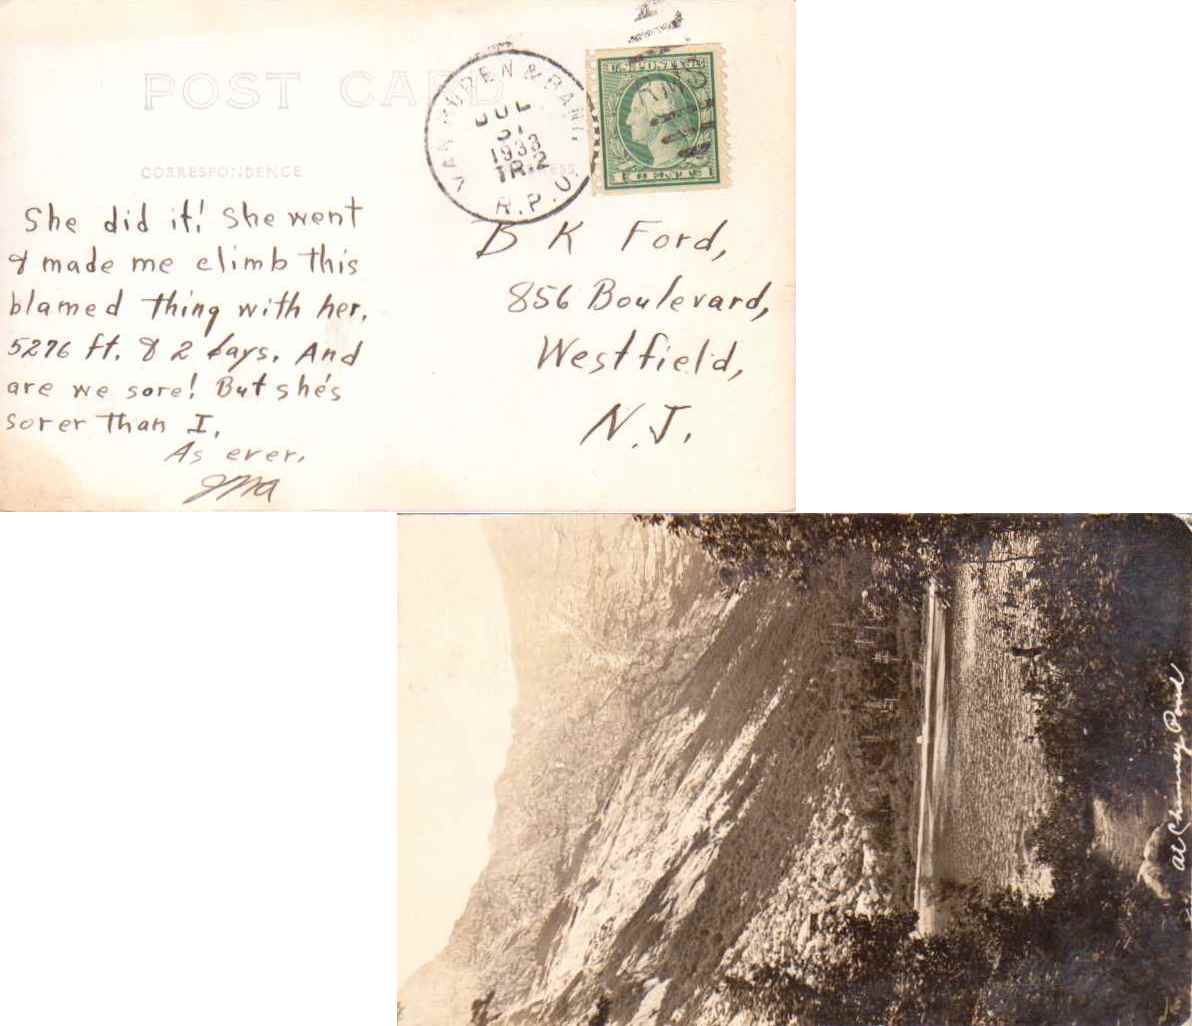 POST CARD
CORRESPONDENCE
VAN BUREN & BANG.
JUL
31
1933
TR.2
R.P.O.
She did it! She went
& made me climb this
blamed thing with her.
5276 ft. & 2 days. And
are we sore! But she's
sorer than I.
As ever,
B K Ford,
856 Boulevard,
Westfield,
N.J.
at Chimney Pond